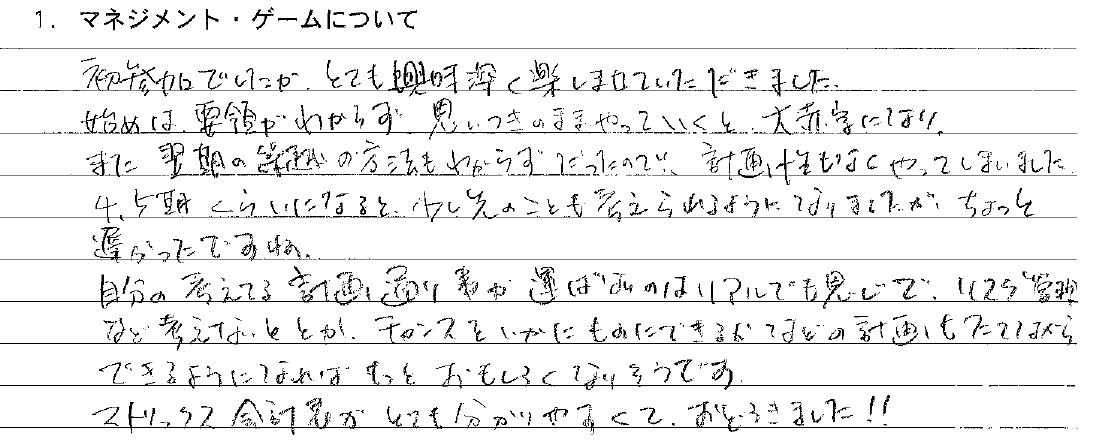 1. マネジメント・ゲームについて
初参加でしたが、とても興味深く楽しませていただきました。
始めは、要領がわからず 思いつきのままやっていくと、大赤字になり、
また 翌期の繰越の方法もわからずだったので、計画性もなくやってしまいました
4、5期くらいになると、少し先のことも考えられるようになりましたが、ちょっと
遅かったですね。
自分の考えてる計画通り 事が運ばないのはリアルでも同じで、リスク管理
など考えないととか、チャンスをいかにものにできるかなどの計画もたてながら
できるようになれば もっと おもしろくなりそうです。
マトリックス会計表がとても分かりやすくて、おどろきました!!